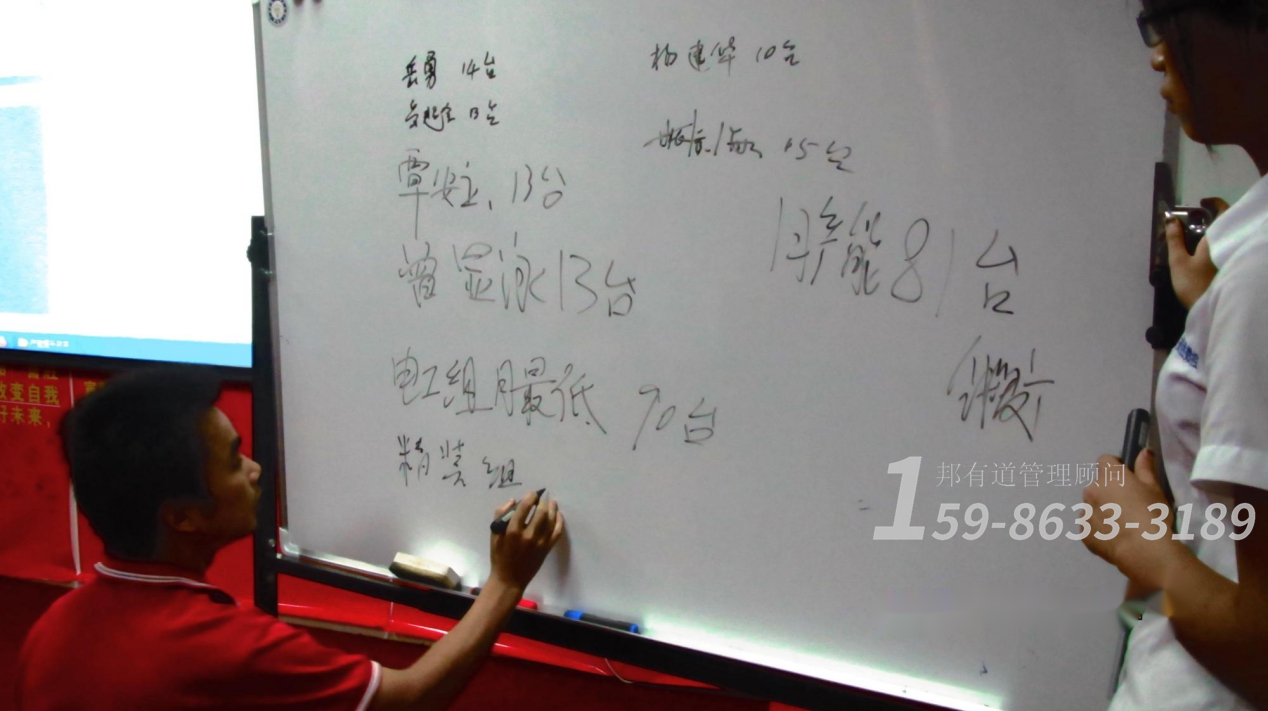 岳勇 14台
13台
杨建华 10台
15台
覃安 13台
曾显泳13台
月产能81台
电工组月最低 90台
精装组
改变自我
好未来,
邦有道管理顾问
159-8633-3189